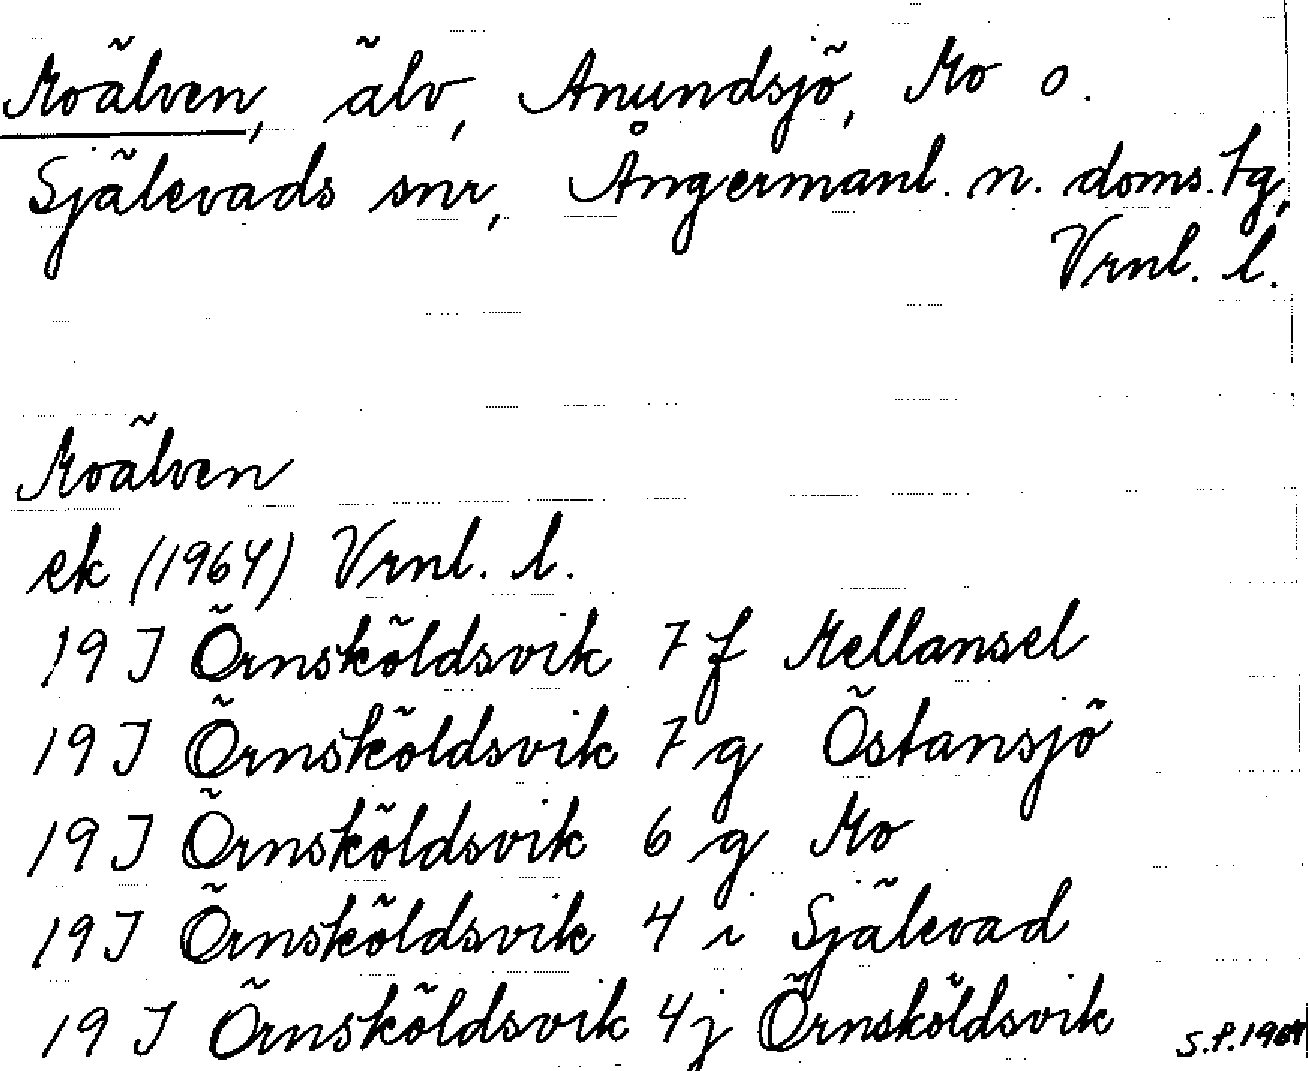 Moälven, älv, Anundsjö, Mo o.
Själevads snr, Ångermanl. n. doms. tg,
Vrnl. l.
Moälven
ek (1964) Vrnl. l.
19 J Örnsköldsvik 7 f Mellansel
19 J Örnsköldsvik 7 g Östansjö
19 J Örnsköldsvik 6 g Mo
19 J Örnsköldsvik 4 i Själevad
19 J Örnsköldsvik 4 j Örnsköldsvik
S.P.